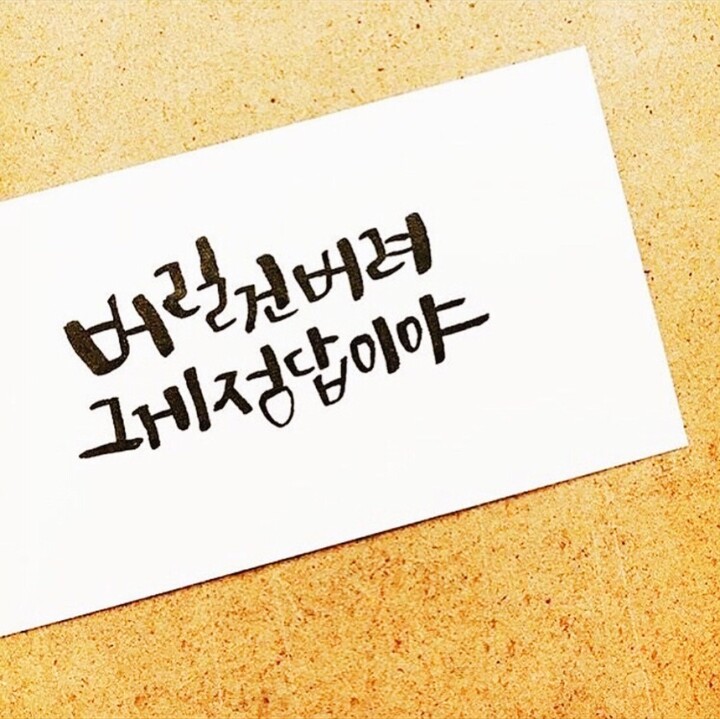 버릴건버려
그게정답이야